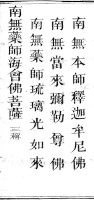 南無本師釋迦牟尼佛
南無當來彌勒尊佛
南無藥師琉璃光如來
南無藥師海會佛菩薩 三稱